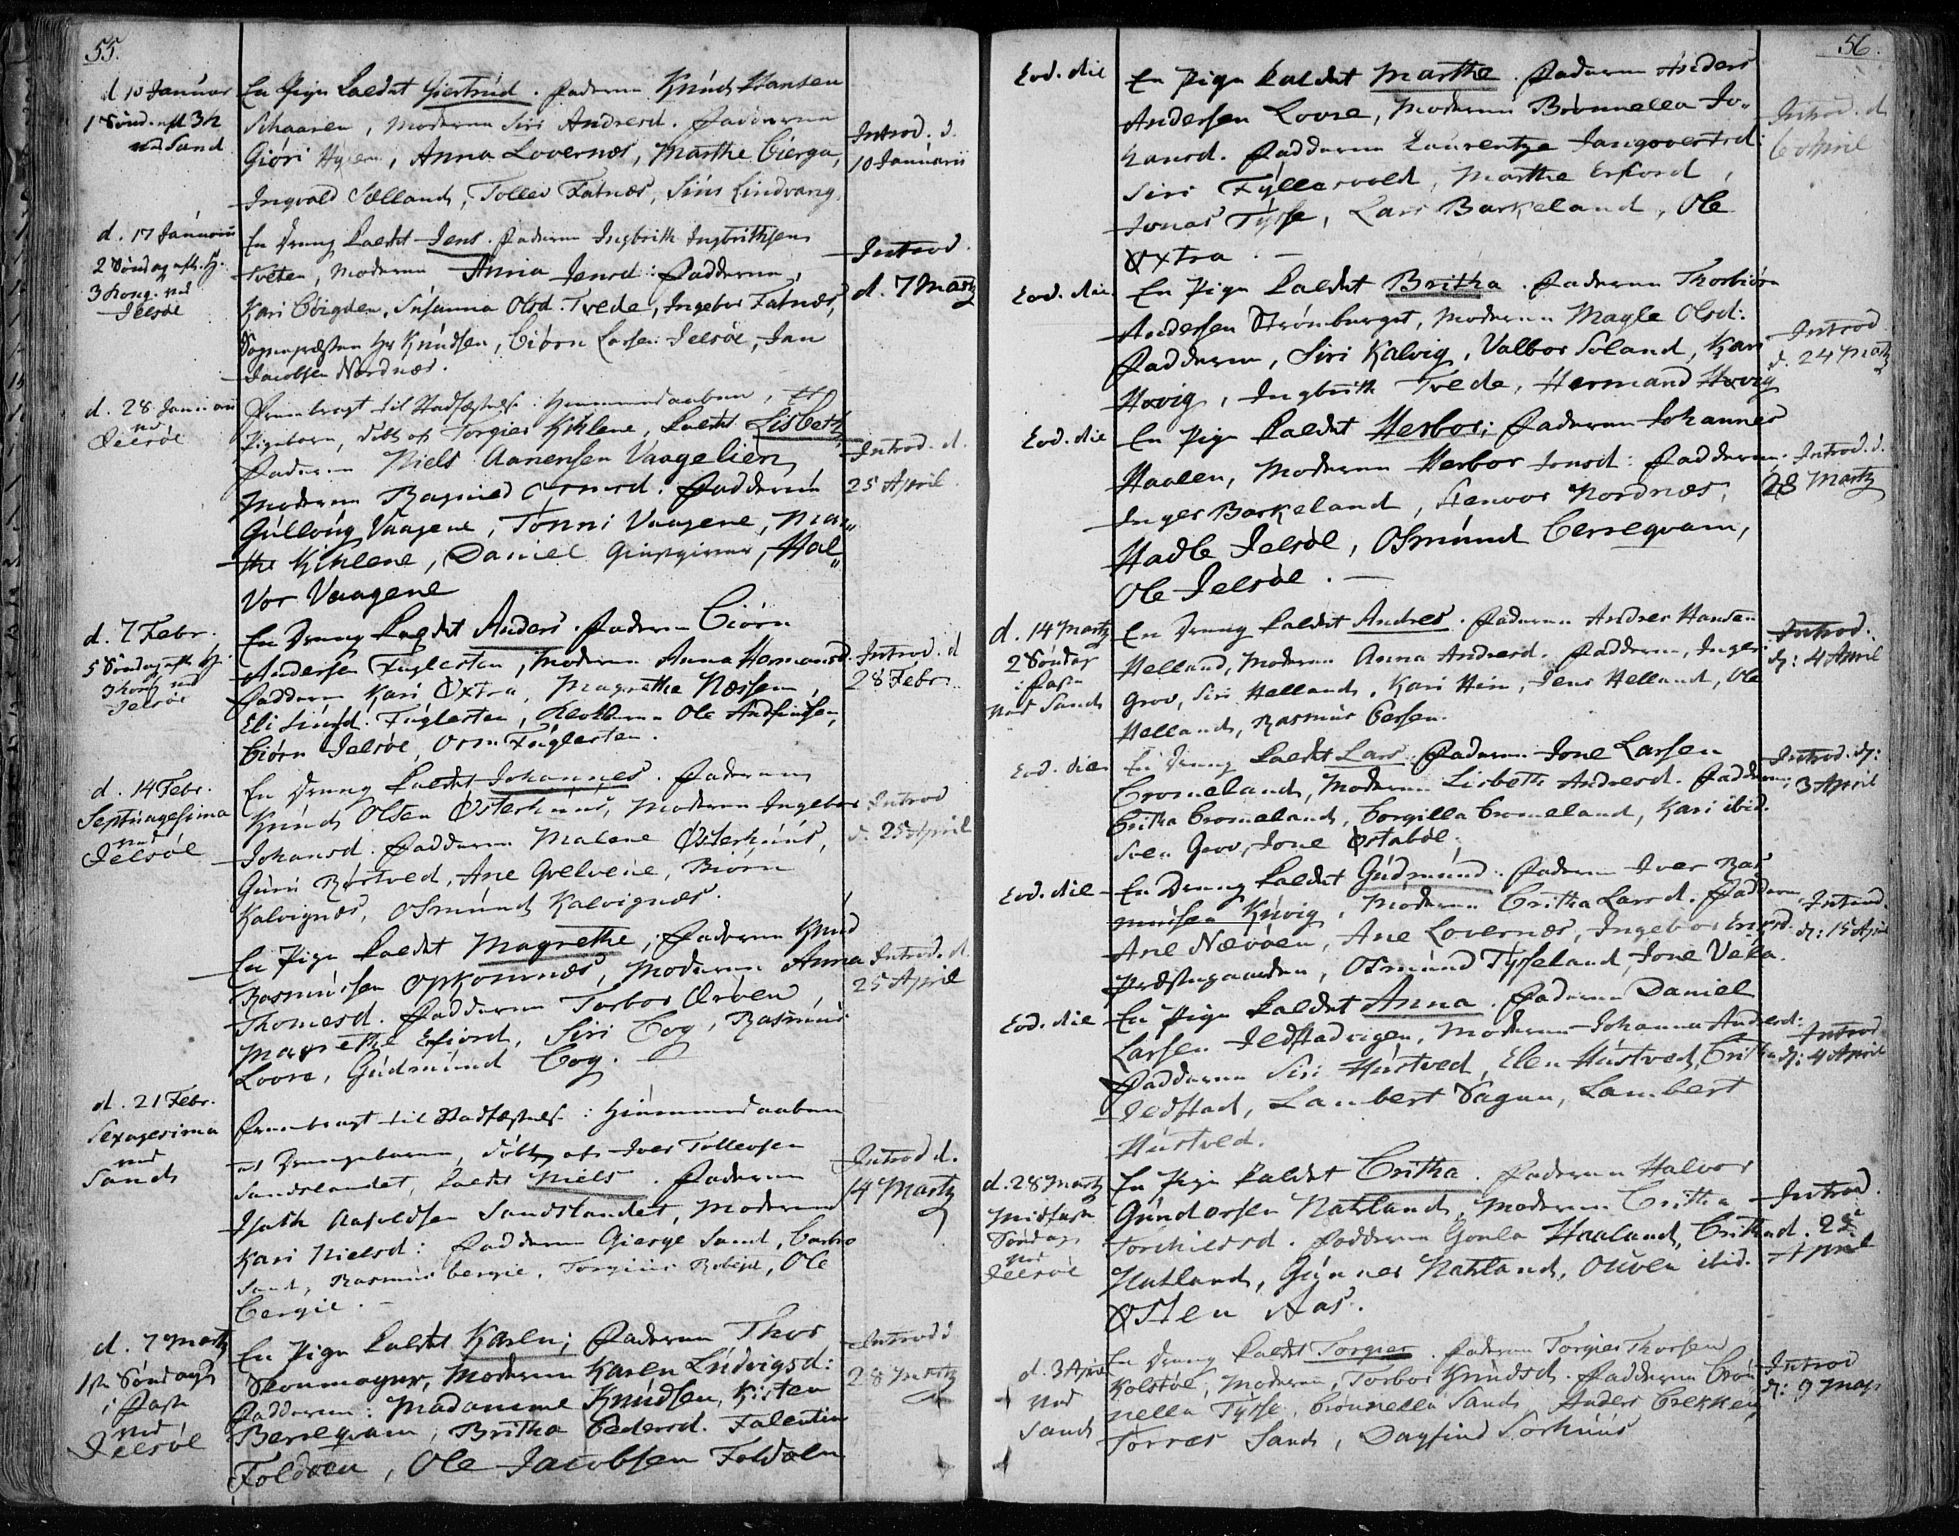 55.
d 10 Januar
1 Sønd. eft 3 h
ved Sand
En Pige kaldet Giertrud. Faderen Knud Hansen
Schaaren, Moderen Siri Andresd. Fadderne
Giøri, Anna Lovernæs, Marthe Bierga,
Ingvald Sælland, Tollev Fatnæs, Siur Lindvang
Introd. d.
10 Januarii
d. 17 Januarii
2 Søndag eft. H.
3 Kong. ved
Jelsøe
En Dreng kaldet Jens. Faderen Ingbrith Ingbrithsen
Tveten, Moderen Anna Jensd: Fadderne,
Kari Bøigden, Susanna Olsd. Tvede, Ingebor Fatnæs,
Sognepræsten Hr Knudsen, Biørn Larsen Jelsøe, Jan
Jacobsen Nordnæs.
Introd.
d. 7 Martz
d. 28 Januarii
ved
Jelsøe
Frembragt til Stadfæstelse: Hiemmedaaben, et
Pigebarn, døbt af Torgier Kihlene, kaldt Lisbeth
Faderen Niels Aanensen Vaagelien,
Moderen Ragnild. Fadderne
Gulloug Vaagene, Tønni Vaagene, Mar„
the Kihlene, Daniel, Hal„
vor Vaagene
Introd. d.
25 April.
d. 7 Febr.
5 Søndag eft. H.
3 Kong. ved
Jelsøe
En Dreng kaldet Anders. Faderen Biørn
Andersen Fuglesten, Moderen Anna Hermansd.
Fadderne Kari Øxtra, Magrethe Næssen,
Eli Fuglesten, Klokkeren Ole Andfindsen,
Biørn Jelsøe, Orm Fuglesten.
Introd. d
28 Febr.
d. 14 Febr.
Septuagesima
ved
Jelsøe
En Dreng kaldet Johannes. Faderen
Knud Olsen Østerhuus, Moderen Ingebor
Johansd. Fadderne Malene Østerhuus,
Guru Rørtved, Ane Qvelvene, Biørn
Kalvignæs, Osmund Kalvignæs.
Introd
d. 25 April
En Pige kaldet Magrethe, Faderen Knud
Rasmussen Opkomnæs, Moderen Anna
Thomesd. Fadderne Torbor Ørøen
Magrethe Erfiord, Siri Bog, Rasmus
Loore, Gudmund Bog.
Introd. d.
25 April
d. 21 Febr.
Sexagesima
ved
Sand
Frembragt til Stadfæstelse: Hiemmedaaben
et Drengebarn, døbt af Iver Tollevsen
Sandslandet, kaldt Niels. Faderen
Isach Sandslandet, Moderen
Kari Nielsd: Fadderne Gierge Sand, Barbro
Sand, Rasmus Bergie, Torgiuls, Ole
Bergie.
Introd d.
14 Martz
d. 7 Martz
1ste Søndag
i Faste
ved
Jelsøe
En Pige kaldet Karen; Faderen Thor
Skoemager, Moderen Karen Ludvigsd:
Fadderne: Madamme Knudsen, Kisten
Berreqvam, Britha Pedersd. Falentin
Foldøen, Ole Jacobsen Foldøen
Introd d
28 Martz
56.
Eod. die
En Pige kaldet Marthe. Faderen Anders
Andersen Lovre, Moderen Brønnella Jo„
hansd. Fadderne Laurentze
Siri Fyllesvold, Marthe Erfiord,
Jonas Tysse, Lars Barkeland, Ole
Øxtra.
Introd. d
6 April
Eod. die.
En Pige kaldet Britha. Faderen Thorbiørn
Andersen Strømberget, Moderen Magle Olsd:
Fadderne, Siri Kalvig, Valbor Soland, Kari
Høvig, Ingbrith Tvede, Hermand Høvig
Introd
d. 24 Martz
Eod. die
En Pige kaldet Herbor; Faderen Johannes
Haalen, Moderen Herbor Jonsd: Fadderne
Inger Barkeland, Stenvor Nordnæs,
Hadle Jelsøe, Osmund Berreqvam,
Ole Jelsøe.
Introd. d.
28 Martz
d. 14 Martz
2 Søndag
i Faste
ved Sand
En Dreng kaldet Andres. Faderen Andres Hansen
Helland, Moderen Anna Andresd. Fadderne, Inger
Grov, Siri Helland, Kari Hiin, Jens Helland, Ole
Helland, Rasmus Versen.
Introd.
d: 4 April
Eod. die
En Dreng kaldet Lars. Faderen Jone Larsen
Bromeland, Moderen Lisbeth Andresd. Fadderne
Britha Bromeland, Borgilla Bromeland, Kari ibid.
Sven Grov, Jone Østabøe.
Introd. d:
3 April
Eod. die
En Dreng kaldet Gudmund. Faderen Iver Ras„
mussen Krüvig, Moderen Britha Larsd. Fadderne
Ane Nævøen, Ane Lovernæs, Ingebor
Præstegaarden, Osmund Tysseland, Jone Vela.
Introd.
d: 15 April
Eod. die
En Pige kaldet Anna. Faderen Daniel
Larsen Jedstadvigen, Moderen Johanna Andersd:
Fadderne Siri Hustved, Elen Hustved, Britha
Jedstad, Lambert Vagen, Lambert
Hustved.
Introd
d: 4 April
d. 28 Martz
Midfaste
Søndag
ved
Jelsøe
En Pige kaldet Britha. Faderen Halvor
Gundersen Natland, Moderen Britha
Torchildsd. Fadderne Gonla Haaland, Britha
Natland, Gunner Natland, Ouden ibid.
Østen Aas.
Introd.
d. 22
April
d. 3 April
ved
Sand
En Dreng kaldet Torgier. Faderen Torgier Thorsen
Kolbøe, Moderen, Torbor Knudsd. Fadderne Brøn
nella Tysse, Brønnella Sand, Anders Brekken,
Torres Sand, Dagfind Sørhuus
Introd
d: 9 Maj